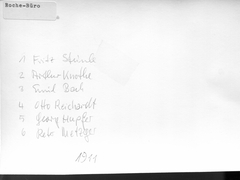 Boche-Büro
1 Fritz Steinle
2 Arthur Knothe
3 Emil Bach
4 Otto Reichardt
5 Georg Hupfer
6 Rob. Metzger
1911